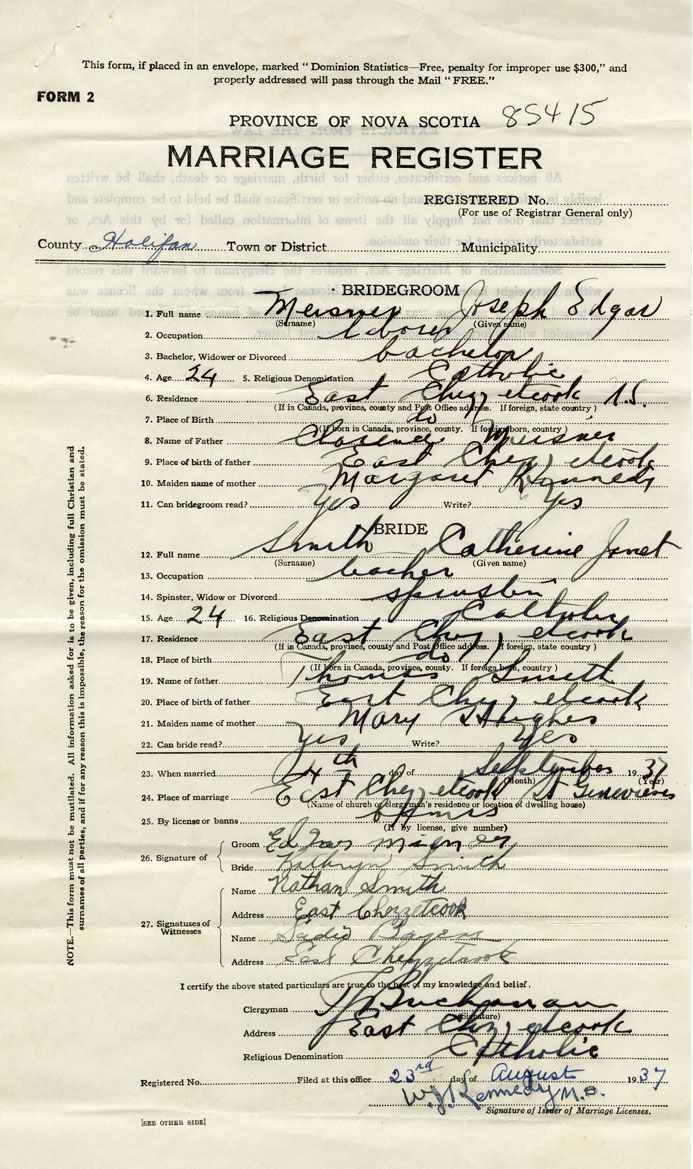 This form, if placed in an envelope, marked "Dominion Statistics—Free, penalty for improper use $300," and
properly addressed will pass through the Mail "FREE."
FORM 2
PROVINCE OF NOVA SCOTIA 85415
MARRIAGE REGISTER
REGISTERED No.
(For use of Registrar General only)
County Halifax Town or District Municipality
BRIDEGROOM
1. Full name Meisner Joseph Edgar
(Surname) (Given name)
2. Occupation laborer
3. Bachelor, Widower or Divorced bachelor
4. Age 24 5. Religious Denomination Catholic
6. Residence East Chezzetcook N.S.
(If in Canada, province, county and Post Office address. If foreign, state country)
7. Place of Birth do
(If born in Canada, province, county. If foreign born, country)
8. Name of Father Clarence Meisner
9. Place of birth of father East Chezzetcook
10. Maiden name of mother Margaret Kennedy
11. Can bridegroom read? Yes Write? Yes
BRIDE
12. Full name Smith Catherine Janet
(Surname) (Given name)
13. Occupation teacher
14. Spinster, Widow or Divorced spinster
15. Age 24 16. Religious Denomination Catholic
17. Residence East Chezzetcook
(If in Canada, province, county and Post Office address. If foreign, state country)
18. Place of birth do
(If born in Canada, province, county. If foreign born, country)
19. Name of father Thomas Smith
20. Place of birth of father East Chezzetcook
21. Maiden name of mother Mary Hughes
22. Can bride read? Yes Write? Yes
23. When married 4th day of September 1937
(Month) (Year)
24. Place of marriage East Chezzetcook St Genevieves
(Name of church or clergyman's residence or location of dwelling house)
25. By license or banns banns
(If by license, give number)
26. Signature of Groom Edgar
Bride Kathryn Smith
27. Signatures of Witnesses Name Nathan Smith
Address East Chezzetcook
Name Sadie
Address East Chezzetcook
I certify the above stated particulars are true to the best of my knowledge and belief.
Clergyman Buchanan
(Signature)
Address East Chezzetcook
Religious Denomination Catholic
Registered No. Filed at this office 23rd day of August 1937
W.J. Kennedy M.D.
Signature of Issuer of Marriage Licenses.
[SEE OTHER SIDE]
NOTE.—This form must not be mutilated. All information asked for is to be given, including full Christian and
surnames of all parties, and if for any reason this is impossible, the reason for the omission must be stated.